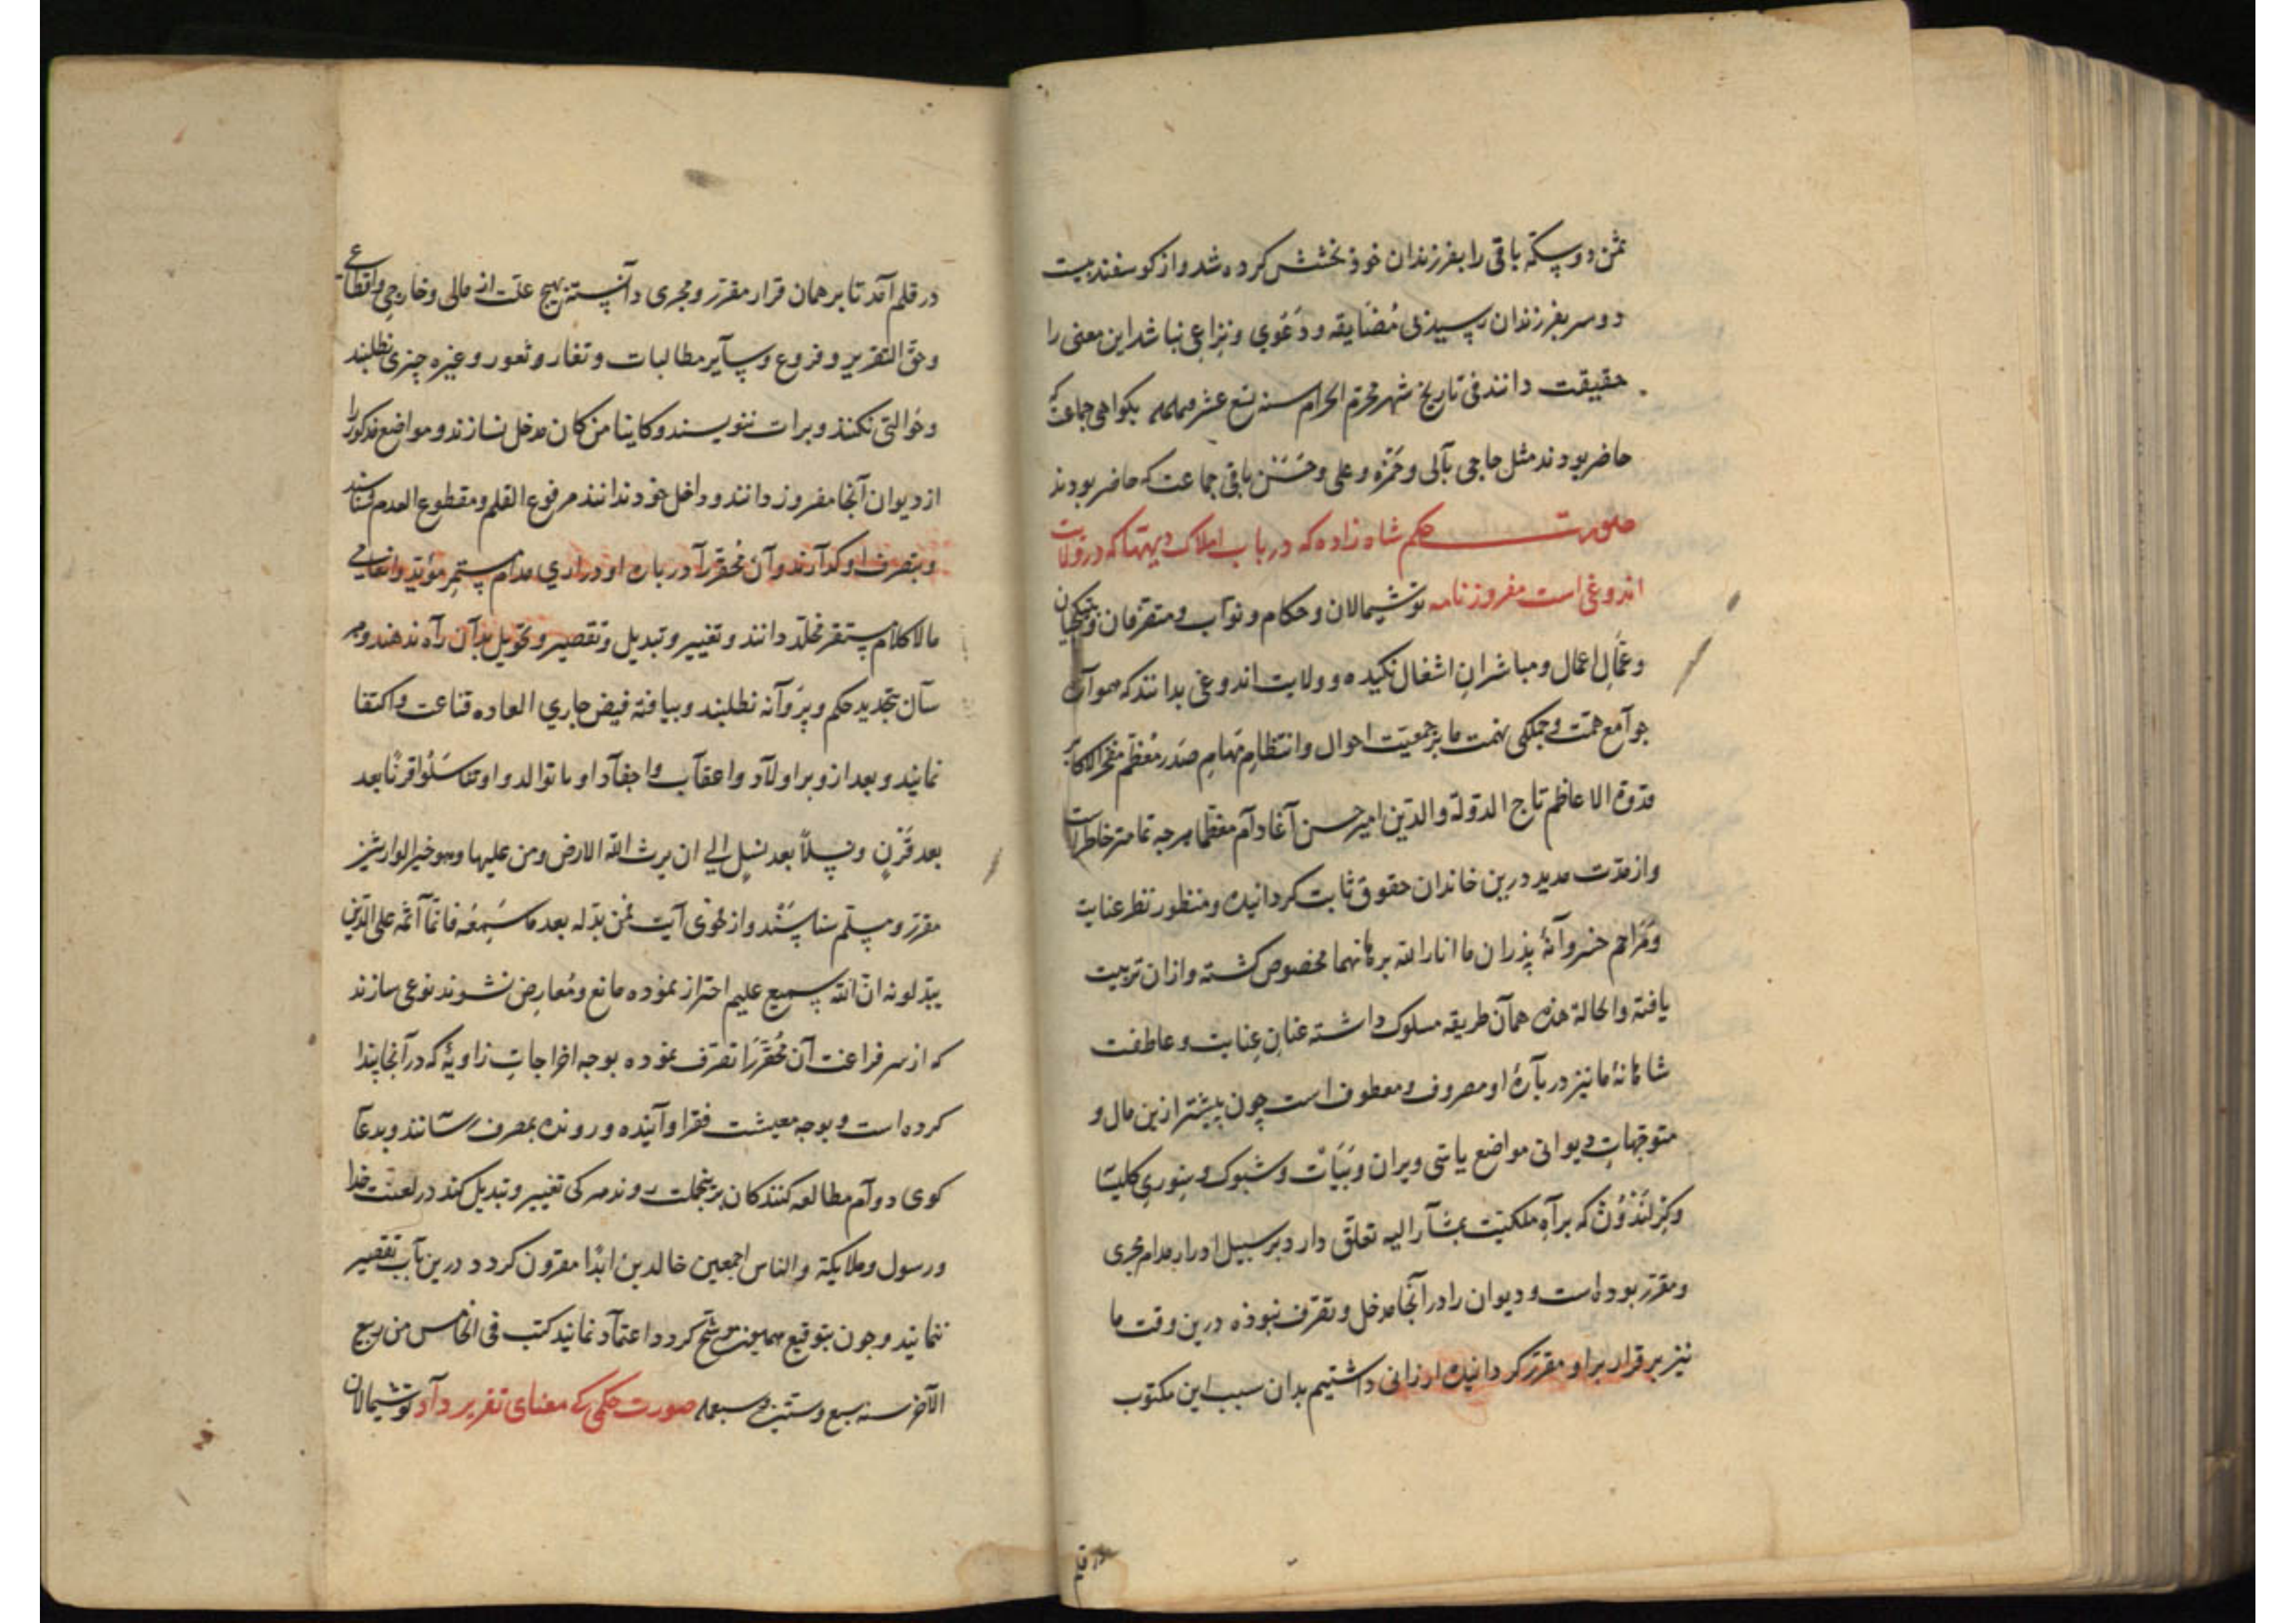 ثمن دو سکه باقی را بفرزندان خوذ بخشش کرده شد و از کوسفند بیست
دو سر بفرزندان رسید فی مُضَایقه و دَعْوی و نزاعی نباشد این معنی را
حقیقت دانند فی تاریخ شهر محرّم الحرام سنه تسع عشر بکواهی جماعت که
حاضر بودند مثل حاجی بآلی و حَمْزه و علی و حَسَنْ باقی جماعت که حاضر بودند
صورت حکم شاه زاده که در باب املاک دیهها که در ولایت
اندوغی است مفروز نامه توشیمالان و حکام و نوّاب و متصرّفان
و عُمّالِ اعمال و مباشرانِ اشغال نکیده و ولایت اندوغی بدانند که
جوآمع همّت و جملکی نهمت ما بر جمعیّت احوال و انتظامِ مَهامِ صَدر مُعظّم مفخر الاکابر
قدوة الاعاظم تاج الدّولة و الدّین امیر حسن آغا دآم معظّما هرجه تمامتر خاطر است
و از مدّت مدید درین خاندان حقوق ثابت کردانیده و منظور نظر عنایت
و مَرَاحم خسروآنهٔ پذران ما انار الله برهانهما مخصوص کشته و ازان تربیت
یافته و الحالة هذه همآن طریقه مسلوک داشته عنانِ عنایت و عاطفت
شاهانهٔ ما نیز در بآرهٔ او مصروف و معطوف است چون پیشتر ازین مال و
متوجّهاتِ دیوانی مواضع یاسی ویران و بَیَاتْ و شبوک و بنوری کلیسا
و کِزلَنْدُونْ که برآهِ ملکیّت بمشآر الیه تعلّق دارد بر سبیل ادرار مدام مجری
و مقرّر بوده است و دیوان را در آنجا مدخل و تصرّف نبوذه درین وقت ما
نیز بر قرار بر او مقرّر کردانیده ارزانی داشتیم بدان سبب این مکتوب
در قلم
در قلم آمد تا بر همان قرار مقرّر و مجری دآنسته بهیج علّت از مالی و خارجی و اقطاعی
و حقّ التقریر و فروع و سآیر مطالبات و تغار و ثغور و غیره چیزی نطلبند
و حَوالتی نکنند و برات ننویسند و کاینا من کان مدخل نسازند و مواضع مذکور را
از دیوان آنجا مفروز دانند و داخل خود ندانند مرفوع القلم و مقطوع القدم شناسند
و بتصرف او کذآرند و آن مُحقّر را در باره او دراری مدام مستمر مؤبّد و انعامی
مالاکلام مستقر مخلّد دانند و تغییر و تبدیل و تقصیر و تحویل بدآن رآه ندهند و هر
سآن بتجدید حکم و پروآنه نطلبند و بیافته فیض جاری العاده قناعت و اکتفا
نمایند و بعد ازو بر اولآد و اعقآب و احفآد او ما توالدوا و تناسَلُوا قرنًا بعد
بعد قَرْنٍ و نسلاً بعد نسلٍ الی ان یرث الله الارض و من علیها و هو خیر الوارثین
مقرّر و مسلّم شناسَنْد و از فحوی آیت فمن بدّله بعد ما سَمِعَه فانمّا اثمه علی الذین
یبدّلونه انّ الله سمیع علیم احتراز نموده مانع و مُعارِض نشوند نوعی سازند
که از سر فراغت آن مُحَقَّرَرا تصرّف نموده بوجه اخراجاتِ زاویهٔ که در آنجا بِنا
کرده است و بوجه معیشت فقرا و آینده و رونده بمصرف رسانند و بدعآ
کوی دوآم مطالعه کنندکان برینجملت روند هر کی تغییر و تبدیل کند در لعنت خدا
و رسول و ملایکة و الناس اجمعین خالدین ابدًا مقرون کردد درین بآب تقصیر
ننمایند و چون بتوقیع همایون موشّح کردد اعتمآد نمایند کتب فی الخامس من ربیع
الآخر سنه سبع و ستین و سبعمایه صورت حکمی که معنای تقریر دآد توشیمالان